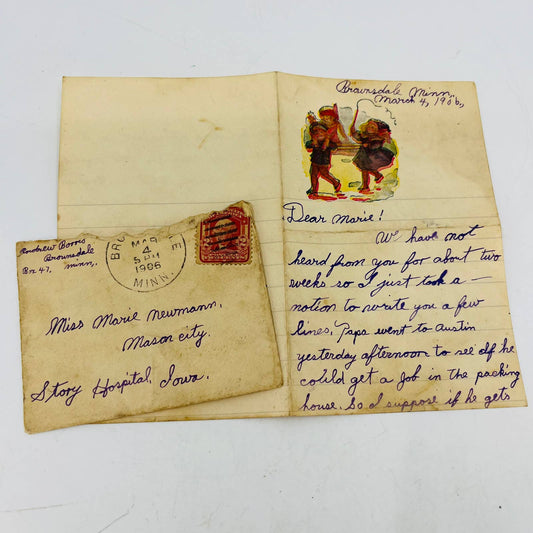 Brownsdale Minn,
March 4, 1906,
Dear Marie!
We have not
heard from you for about two
weeks so I just took a -
notion to write you a few
lines. Papa went to Austin
yesterday afternoon to see if he
could get a Job in the packing
house. So I suppose if he gets
Andrew Borris
Brownsdale
Bx 47. Minn,.
BRO E
MAR
4
5 PM
1906
MINN.
Miss Marie Newmann.
Mason City.
Story Hospital, Iowa.